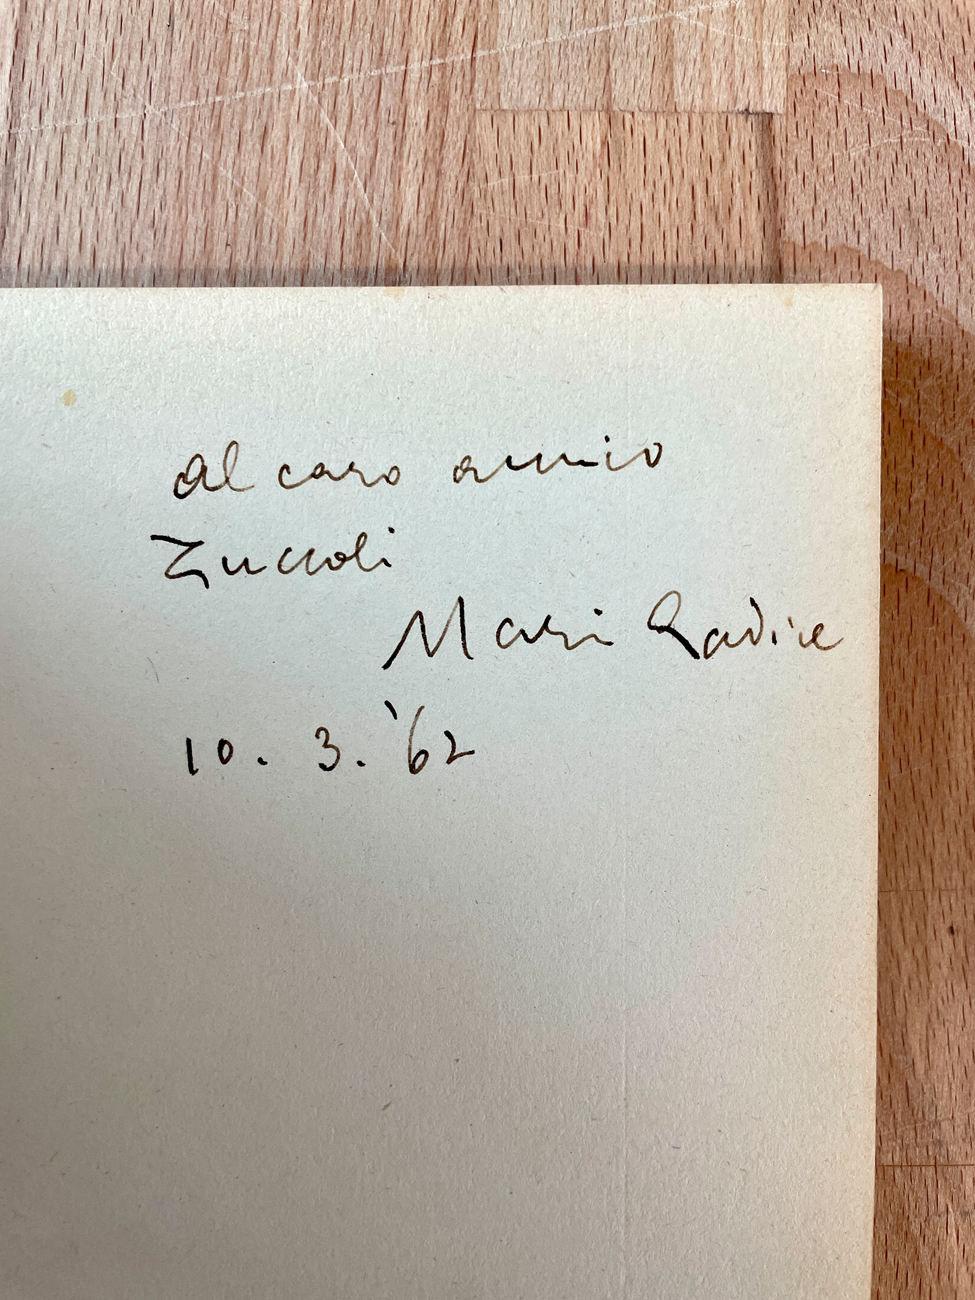 al caro amico
Zuccoli
Mario Radice
10. 3. '62